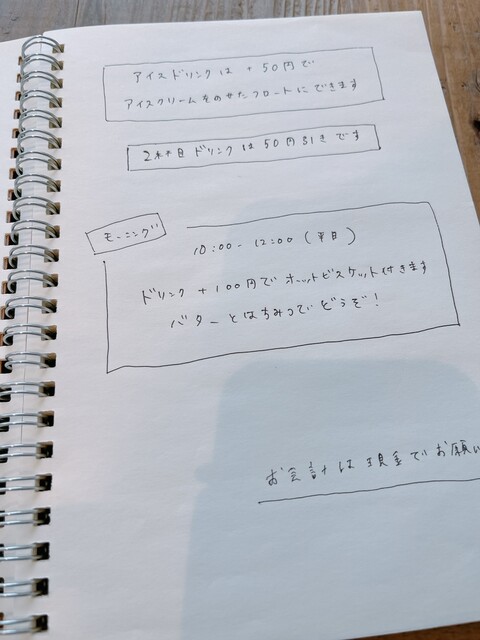 アイスドリンクは +50円で
アイスクリームをのせたフロートにできます
2杯目ドリンクは50円引きです
モーニング
10:00-12:00 (平日)
ドリンク +100円で ホットビスケット付きます
バターとはちみつでどうぞ!
お会計は現金でお願い